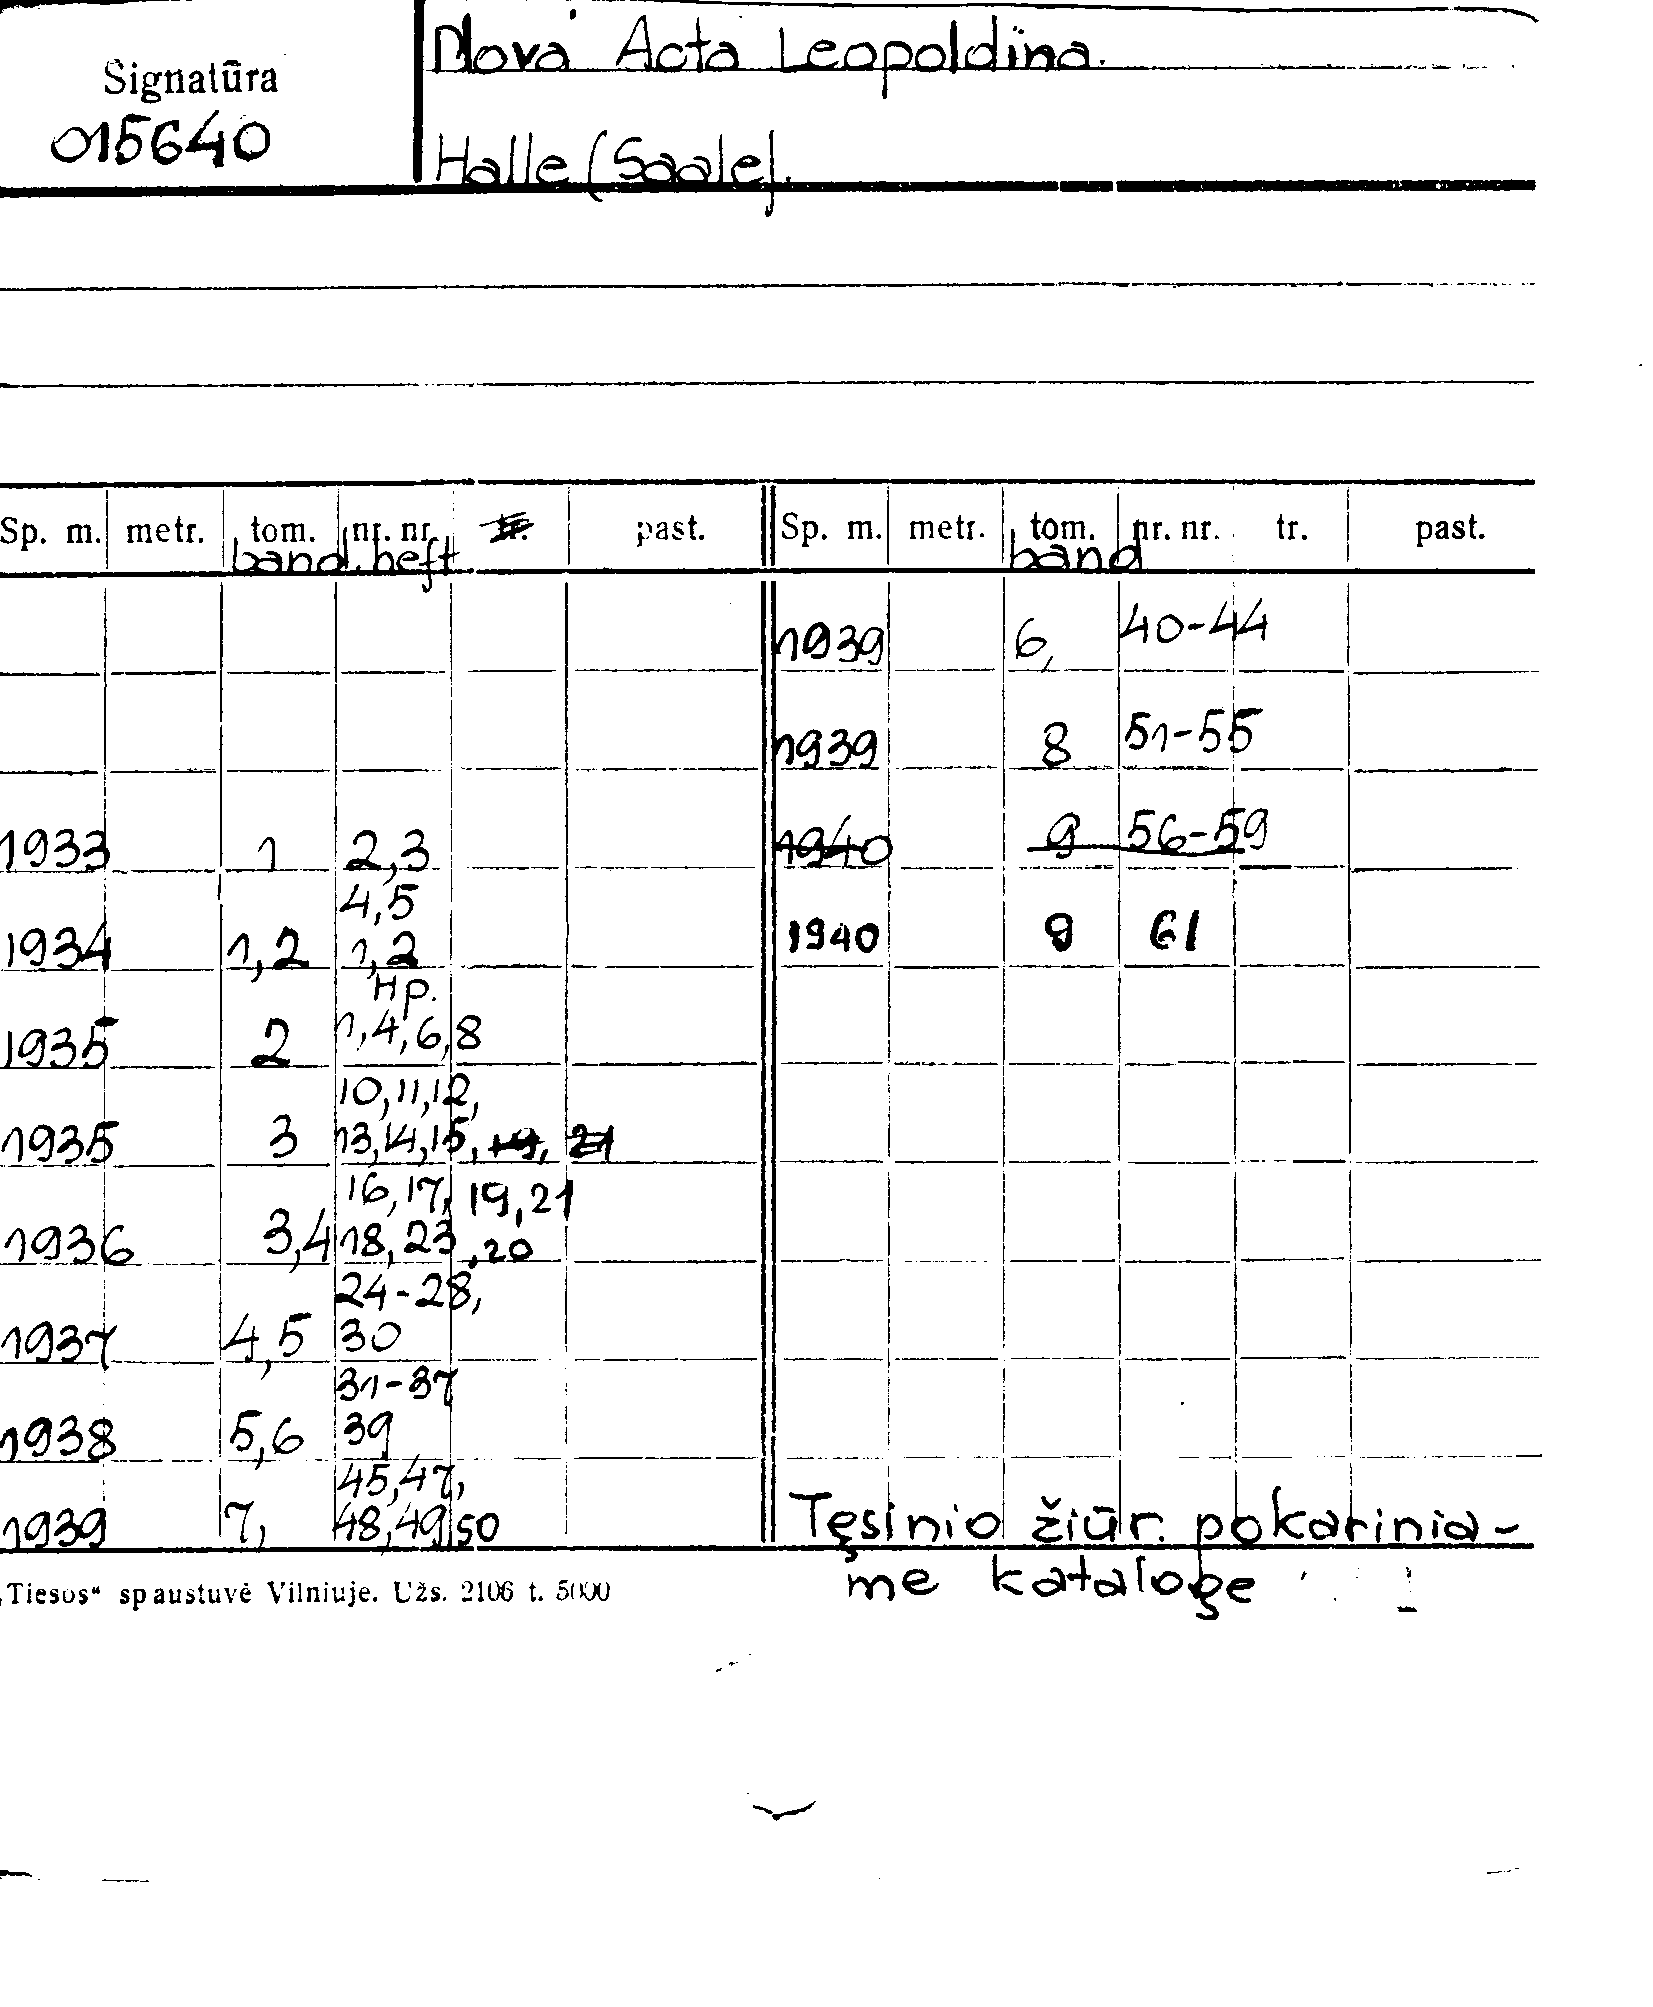 Signatūra
015640
Nova Acta Leopoldina.
Halle (Saale).
Sp. m. metr. tom. nr. nr. tr. past. Sp. m. metr. tom. nr. nr. tr. past.
band. heft band
1939 6, 40-44
1939 8 51-55
1933 1 2,3
1940 9 56-59
4,5
1934 1,2 1,2
1940 9 61
Hp.
1935 2 1,4,6,8
10,11,12,
1935 3 13,14,15, 19, 21
16,17, 19,21
1936 3,4 18,23,20
24-28,
1937 4,5 30
31-37
1938 5,6 39
45,47,
1939 7, 48,49,50
Tęsinio žiūr. pokarinia-
me kataloge
„Tiesos“ spaustuvė Vilniuje. Užs. 2106 t. 5000